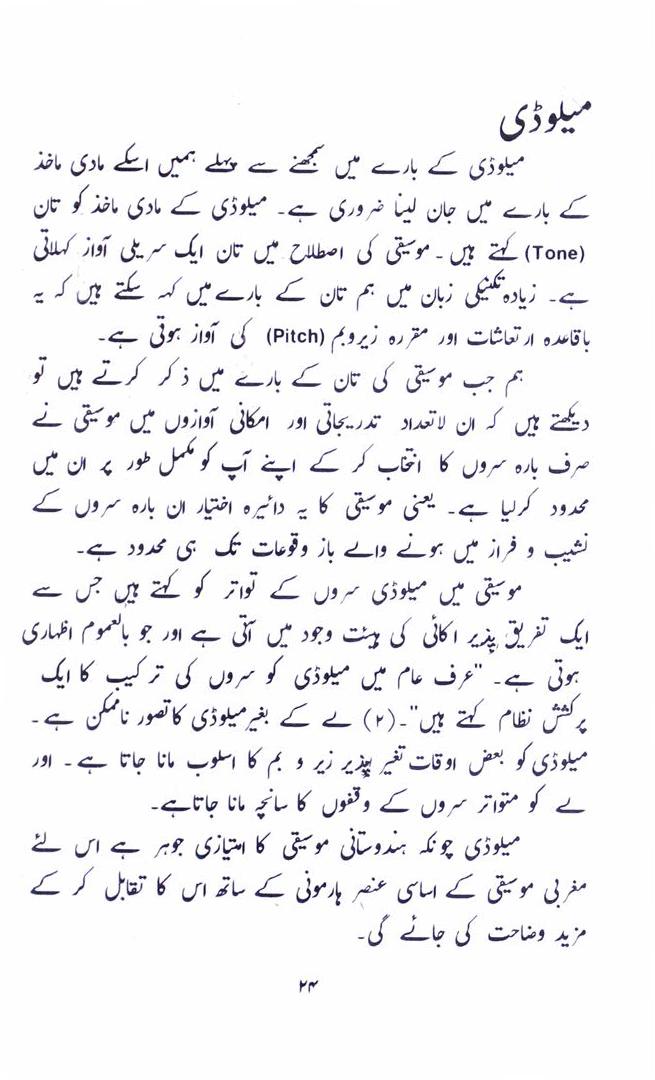 میلوڈی
میلوڈی کے بارے میں سمجھنے سے پہلے ہمیں اسکے مادی ماخذ
کے بارے میں جان لینا ضروری ہے۔ میلوڈی کے مادی ماخذ کو تان
(Tone) کہتے ہیں ۔ موسیقی کی اصطلاح میں تان ایک سریلی آواز کہلاتی
ہے۔ زیادہ تکنیکی زبان میں ہم تان کے بارے میں کہہ سکتے ہیں کہ یہ
باقاعدہ ارتعاشات اور مقررہ زیروبم (Pitch) کی آواز ہوتی ہے۔
ہم جب موسیقی کی تان کے بارے میں ذکر کرتے ہیں تو
دیکھتے ہیں کہ ان لاتعداد تدریجاتی اور امکانی آوازوں میں موسیقی نے
صرف بارہ سروں کا انتخاب کر کے اپنے آپ کو مکمل طور پر ان میں
محدود کرلیا ہے۔ یعنی موسیقی کا یہ دائیرہ اختیار ان بارہ سروں کے
نشیب و فراز میں ہونے والے باز وقوعات تک ہی محدود ہے۔
موسیقی میں میلوڈی سروں کے تواتر کو کہتے ہیں جس سے
ایک تفریق پذیر اکائی کی ہیئت وجود میں آتی ہے اور جو بالعموم اظہاری
ہوتی ہے۔ "عرف عام میں میلوڈی کو سروں کی ترکیب کا ایک
پرکشش نظام کہتے ہیں"۔(۲) لے کے بغیر میلوڈی کا تصور ناممکن ہے۔
میلوڈی کو بعض اوقات تغیر پذیر زیر و بم کا اسلوب مانا جاتا ہے۔ اور
لے کو متواتر سروں کے وقفوں کا سانچہ مانا جاتاہے۔
میلوڈی چونکہ ہندوستانی موسیقی کا امتیازی جوہر ہے اس لئے
مغربی موسیقی کے اساسی عنصر ہارمونی کے ساتھ اس کا تقابل کر کے
مزید وضاحت کی جائے گی۔
۲۴